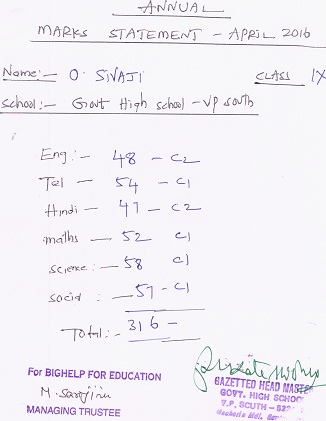 ANNUAL
MARKS STATEMENT - APRIL 2016
Name:- O. SIVAJI CLASS IX
School:- Govt High school - VP South
Eng:- 48 - C2
Tel - 54 - C1
Hindi - 47 - C2
maths - 52 C1
science:- 58 C1
social - 57 - C1
Total:- 316 -
For BIGHELP FOR EDUCATION
MANAGING TRUSTEE
GAZETTED HEAD MASTER
GOVT. HIGH SCHOOL
V.P. SOUTH -